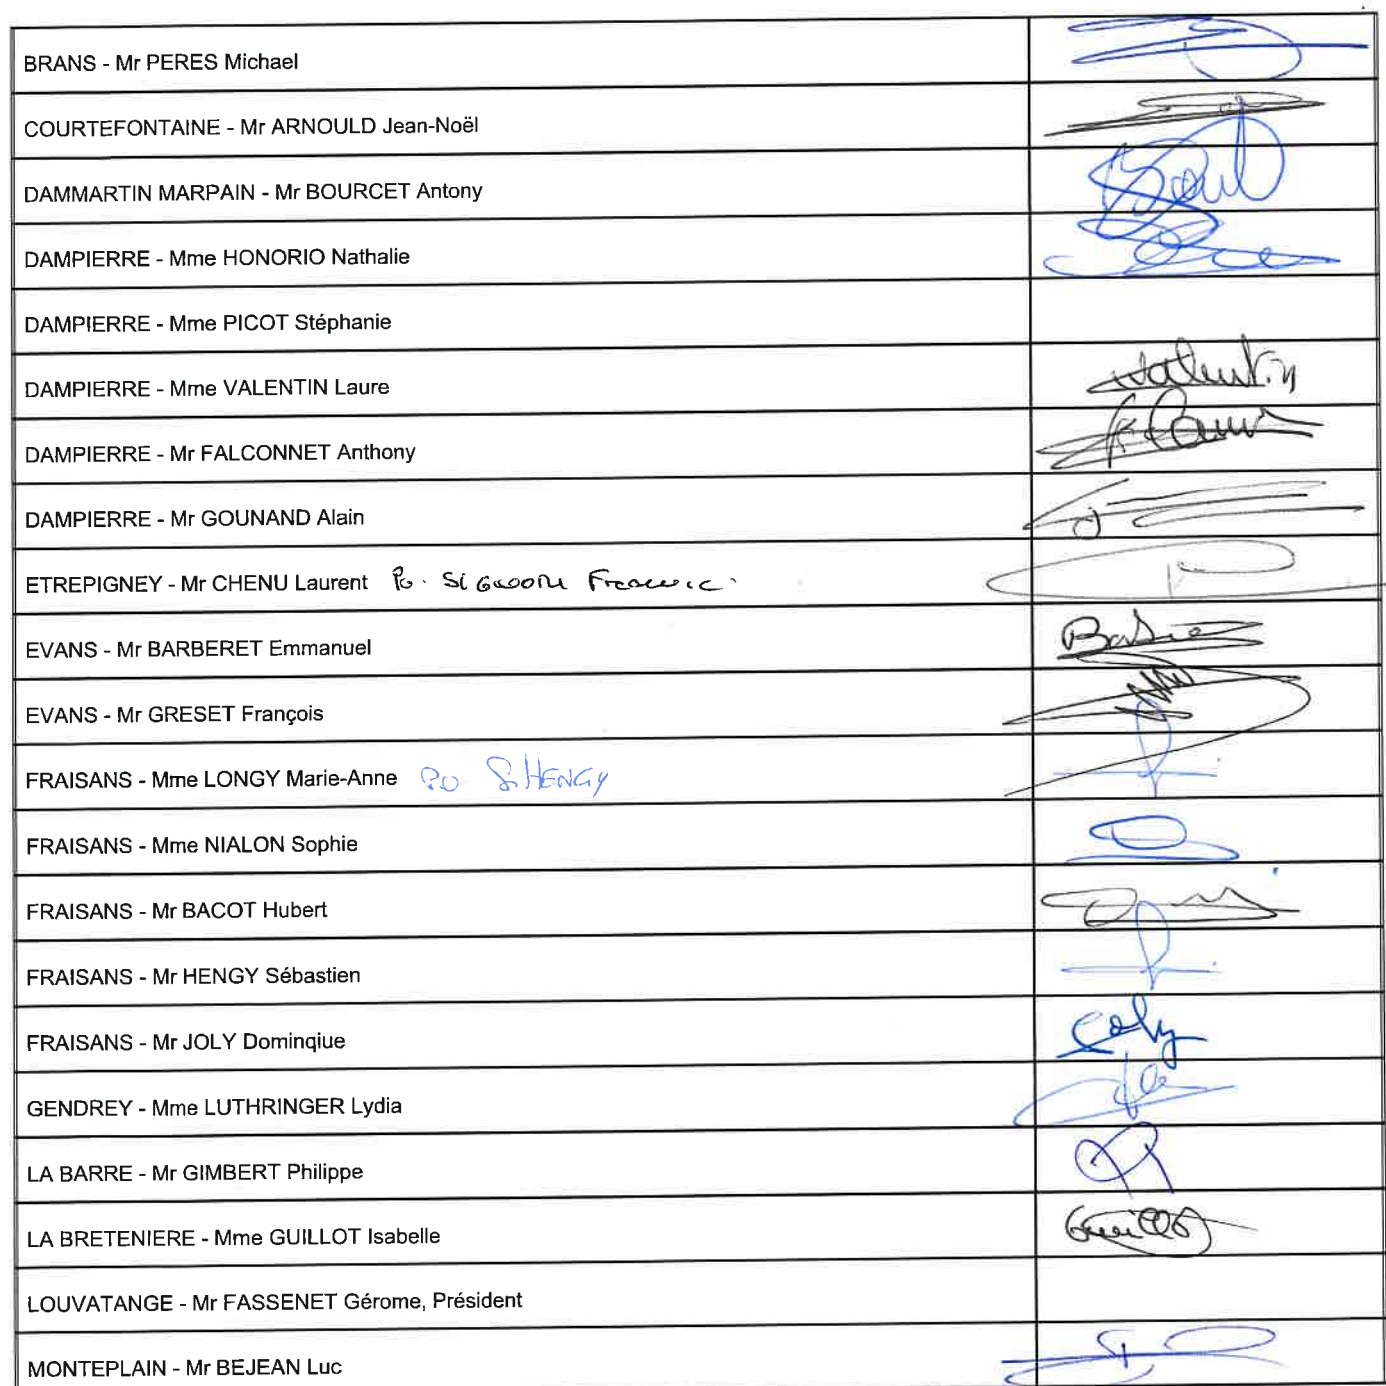 BRANS - Mr PERES Michael
COURTEFONTAINE - Mr ARNOULD Jean-Noël
DAMMARTIN MARPAIN - Mr BOURCET Antony
DAMPIERRE - Mme HONORIO Nathalie
DAMPIERRE - Mme PICOT Stéphanie
DAMPIERRE - Mme VALENTIN Laure Valentin
DAMPIERRE - Mr FALCONNET Anthony
DAMPIERRE - Mr GOUNAND Alain
ETREPIGNEY - Mr CHENU Laurent Po.
EVANS - Mr BARBERET Emmanuel
EVANS - Mr GRESET François
FRAISANS - Mme LONGY Marie-Anne PO S. HENGY
FRAISANS - Mme NIALON Sophie
FRAISANS - Mr BACOT Hubert
FRAISANS - Mr HENGY Sébastien
FRAISANS - Mr JOLY Dominqiue
GENDREY - Mme LUTHRINGER Lydia
LA BARRE - Mr GIMBERT Philippe
LA BRETENIERE - Mme GUILLOT Isabelle Guillot
LOUVATANGE - Mr FASSENET Gérome, Président
MONTEPLAIN - Mr BEJEAN Luc